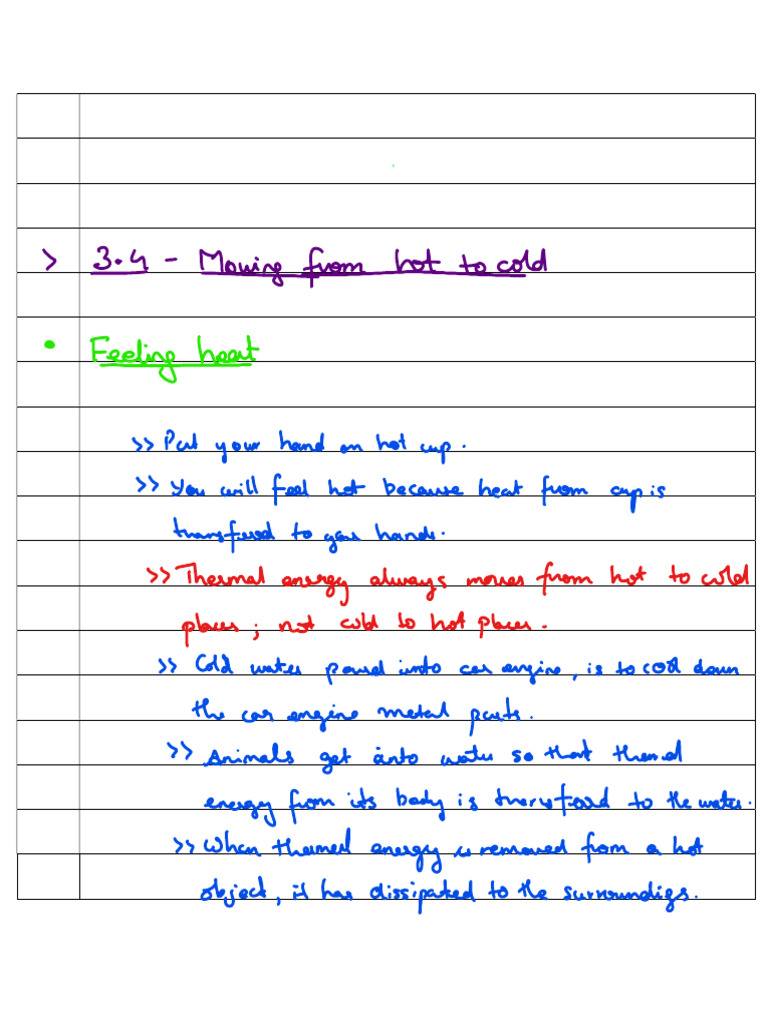 > 3.4 - Moving from hot to cold
• Feeling heat
>> Put your hand on hot cup.
>> You will feel hot because heat from cup is
transfered to your hands.
>> Thermal energy always moves from hot to cold
places; not cold to hot places.
>> Cold water poured into car engine, is to cool down
the car engine metal parts.
>> Animals get into water so that thermal
energy from its body is transfered to the water.
>> When thermal energy is removed from a hot
object, it has dissipated to the surroundigs.